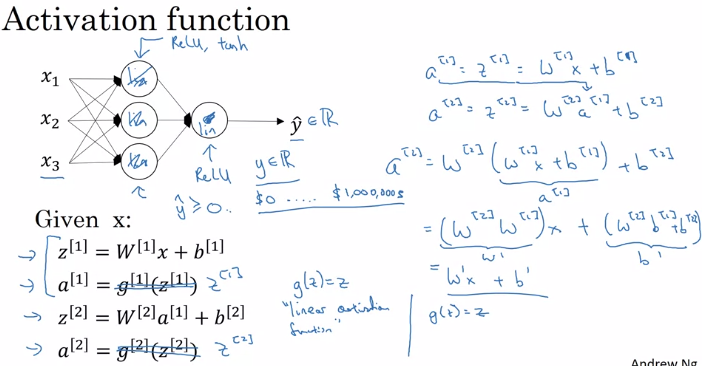 Activation function
ReLU, tanh
x₁
x₂
x₃
lin
ŷ ∈ ℝ
ReLU
y ∈ ℝ
ŷ ≥ 0..
$0 ..... $1,000,000s
Given x:
z[1] = W[1]x + b[1]
a[1] = g[1](z[1]) z[1]
z[2] = W[2]a[1] + b[2]
a[2] = g[2](z[2]) z[2]
g(z) = z
"linear activation
function"
a[1] = z[1] = W[1]x + b[1]
a[2] = z[2] = W[2]a[1] + b[2]
a[2] = W[2](W[1]x + b[1]) + b[2]
a[1]
= (W[2]W[1])x + (W[2]b[1] + b[2])
W' b'
= W'x + b'
g(z) = z
Andrew Ng